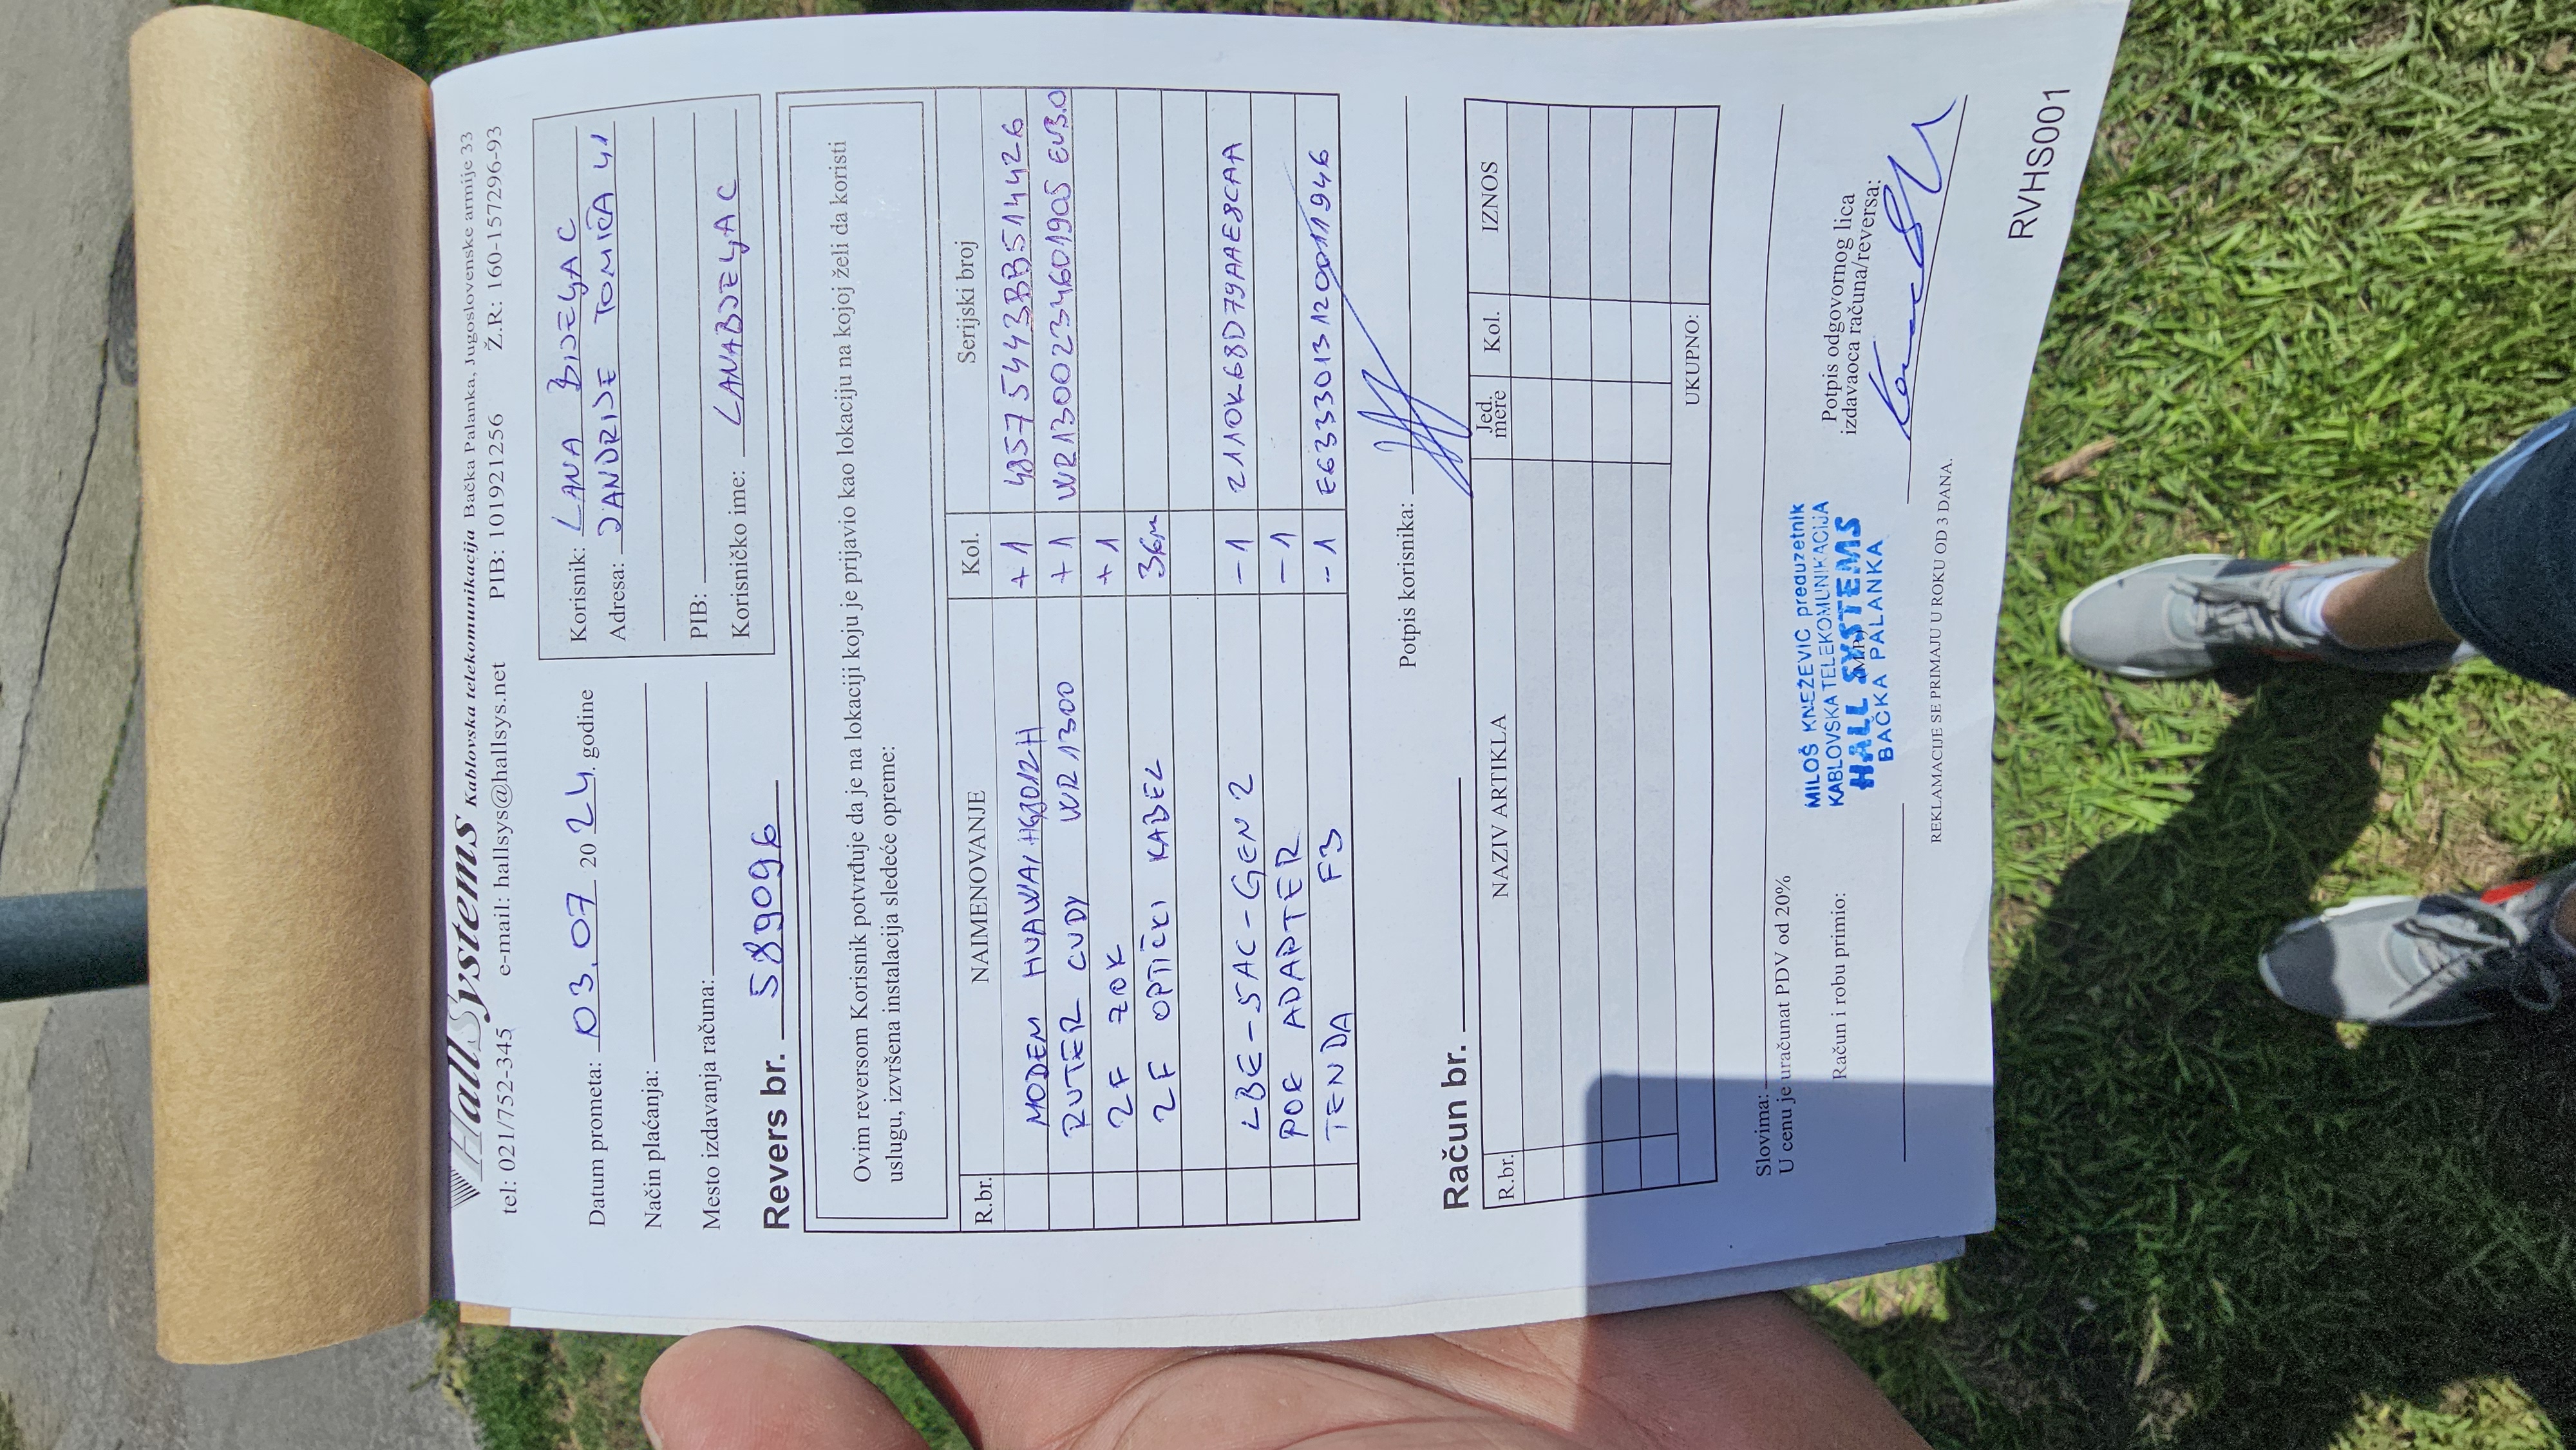 HallSystems Kablovska telekomunikacija Bačka Palanka, Jugoslovenske armije 33
tel: 021/752-345 e-mail: hallsys@hallsys.net PIB: 101921256 Ž.R: 160-157296-93
Datum prometa: 03.07 2024. godine
Način plaćanja:
Mesto izdavanja računa:
Korisnik: LANA BIJELJAC
Adresa: JANDRIJE TOMIĆA 41
PIB:
Korisničko ime: LANABJELJAC
Revers br. 589096
Ovim reversom Korisnik potvrđuje da je na lokaciji koju je prijavio kao lokaciju na kojoj želi da koristi
uslugu, izvršena instalacija sledeće opreme:
R.br. NAIMENOVANJE Kol. Serijski broj
MODEM HUAWAI HG8012H +1 485754433BB514426
RUTER CUDY WR1300 +1 WR1300234601905 EV3.0
2F ZOK +1
2F OPTIČKI KABEL 36m
LBE-5AC-GEN2 -1 2110K68D79AAE8CAA
POE ADAPTER -1
TENDA F3 -1 E6333013120011946
Potpis korisnika:
Račun br.
R.br. NAZIV ARTIKLA Jed. mere Kol. IZNOS
UKUPNO:
Slovima:
U cenu je uračunat PDV od 20%
Račun i robu primio:
MILOŠ KNEŽEVIĆ preduzetnik
KABLOVSKA TELEKOMUNIKACIJA
HALL SYSTEMS
BAČKA PALANKA
Potpis odgovornog lica
izdavaoca računa/reversa:
REKLAMACIJE SE PRIMAJU U ROKU OD 3 DANA.
RVHS001